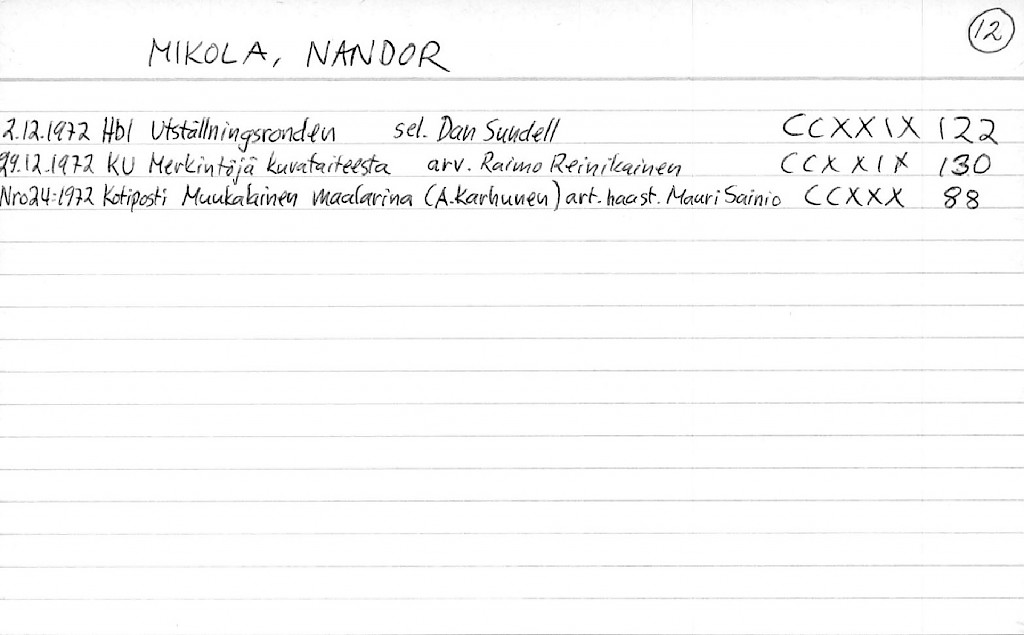 12
MIKOLA, NANDOR
2.12.1972 Hbl Utställningsronden sel. Dan Sundell CCXXIX 122
29.12.1972 KU Merkintöjä kuvataiteesta arv. Raimo Reinikainen CCXXIX 130
Nro24:1972 Kotiposti Muukalainen maalarina (A.Karhunen) art. haast. Mauri Sainio CCXXX 88